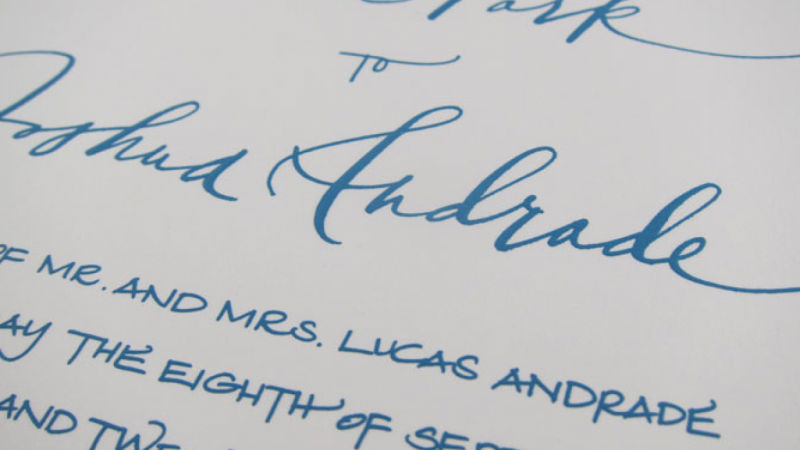 to
Joshua Andrade
OF MR. AND MRS. LUCAS ANDRADE
THE EIGHTH OF
AND